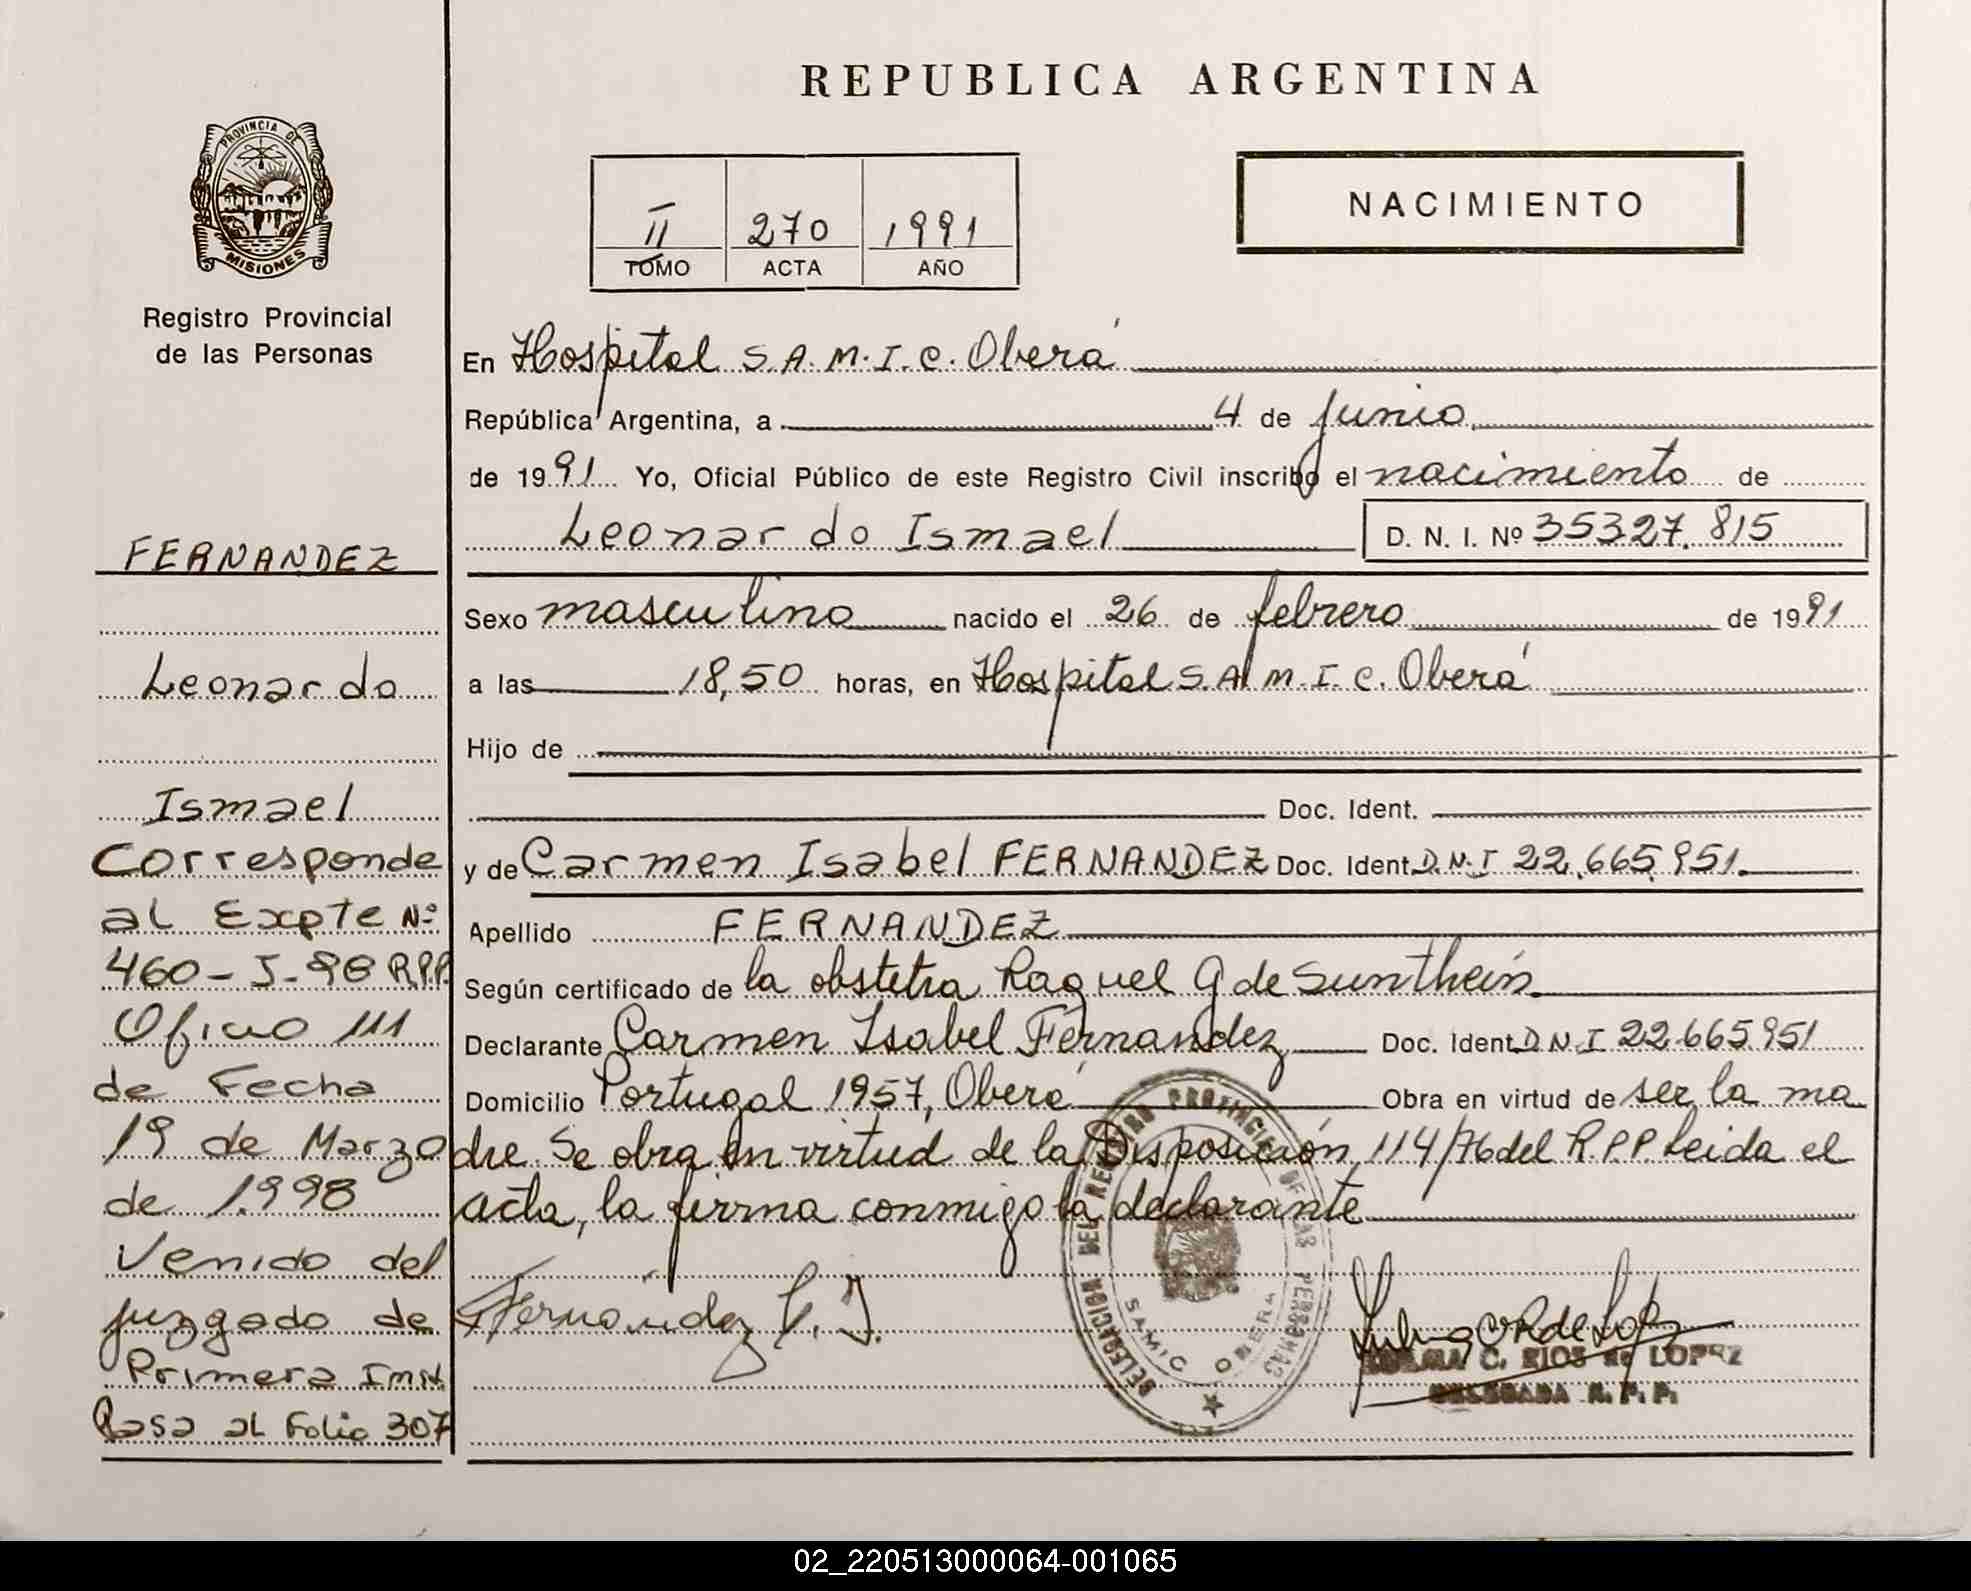 REPUBLICA ARGENTINA
PROVINCIA DE
MISIONES
Registro Provincial
de las Personas
II 270 1991
TOMO ACTA AÑO
NACIMIENTO
En Hospital S.A.M.I.C. Oberá
República Argentina, a 4 de junio
de 1991 Yo, Oficial Público de este Registro Civil inscribo el nacimiento de
Leonardo Ismael D. N. I. Nº 35327.815
Sexo masculino nacido el 26 de febrero de 1991
a las 18,50 horas, en Hospital S.A.M.I.C. Oberá
Hijo de
Doc. Ident.
y de Carmen Isabel FERNANDEZ Doc. Ident. D.N.I 22.665.951.
Apellido FERNANDEZ
Según certificado de la obstetra Raquel G de Sunthein
Declarante Carmen Isabel Fernandez Doc. Ident. D N I 22.665951
Domicilio Portugal 1957, Oberá Obra en virtud de ser la ma
dre. Se obra en virtud de la Disposición 114/76 del R.P.P. Leida el
acta, la firma conmigo la declarante
Fernández C. I.
DELEGACION DEL REGISTRO PROVINCIAL DE LAS PERSONAS
SAMIC OBERA
C. RIOS de LOPEZ
DELEGADA R. P. P.
FERNANDEZ
Leonardo
Ismael
Corresponde
al Expte Nº
460-J-98 R.P.P.
Oficio 111
de Fecha
19 de Marzo
de 1.998
Venido del
juzgado de
Primera Inst.
Pasa al Folio 307
02_220513000064-001065